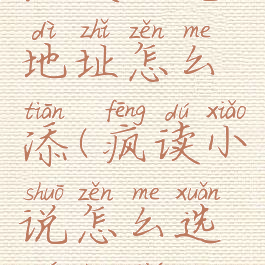 dì zhǐ zěn me
地址怎么
tiān fēng dú xiǎo
添(疯读小
shuō zěn me xuǎn
说怎么选